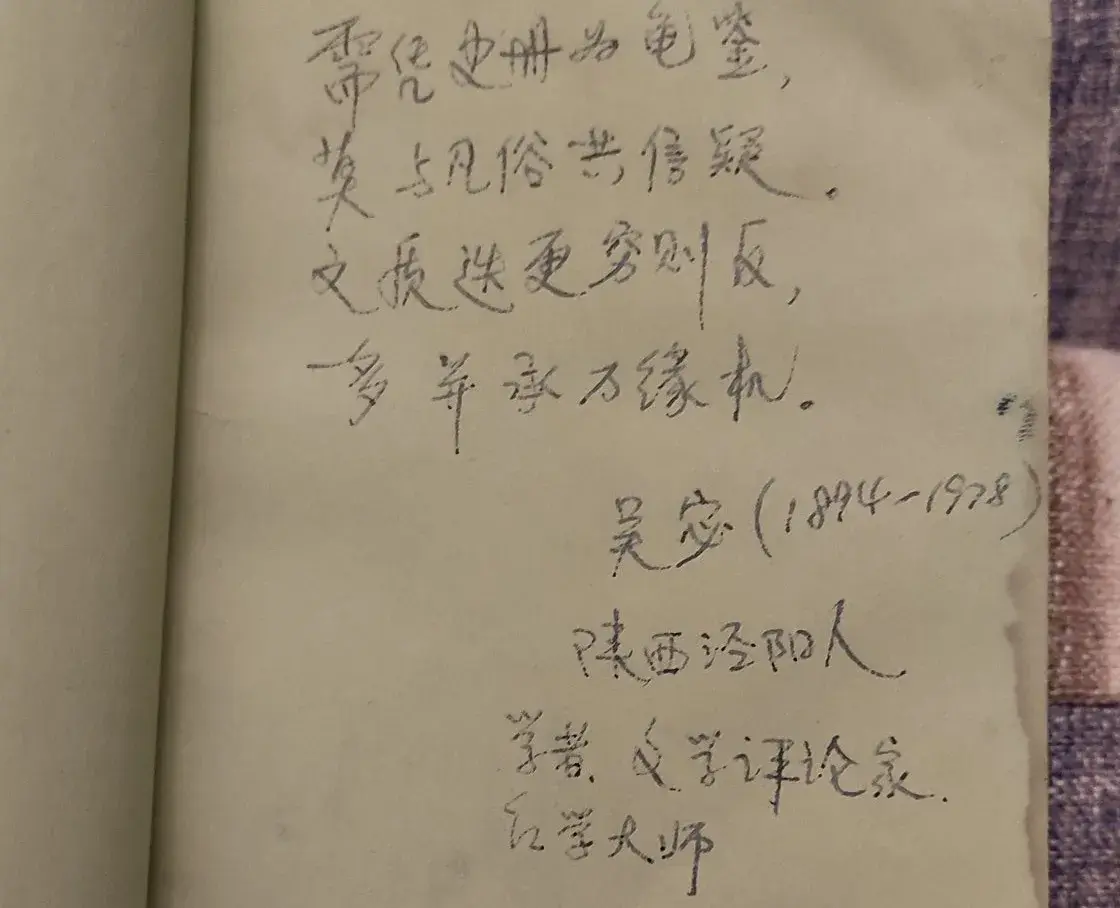 需凭史册为龟鉴,
莫与凡俗共信疑。
文质迭更穷则反,
多并承万缘机。
吴宓(1894-1978)
陕西泾阳人
学者、文学评论家.
红学大师